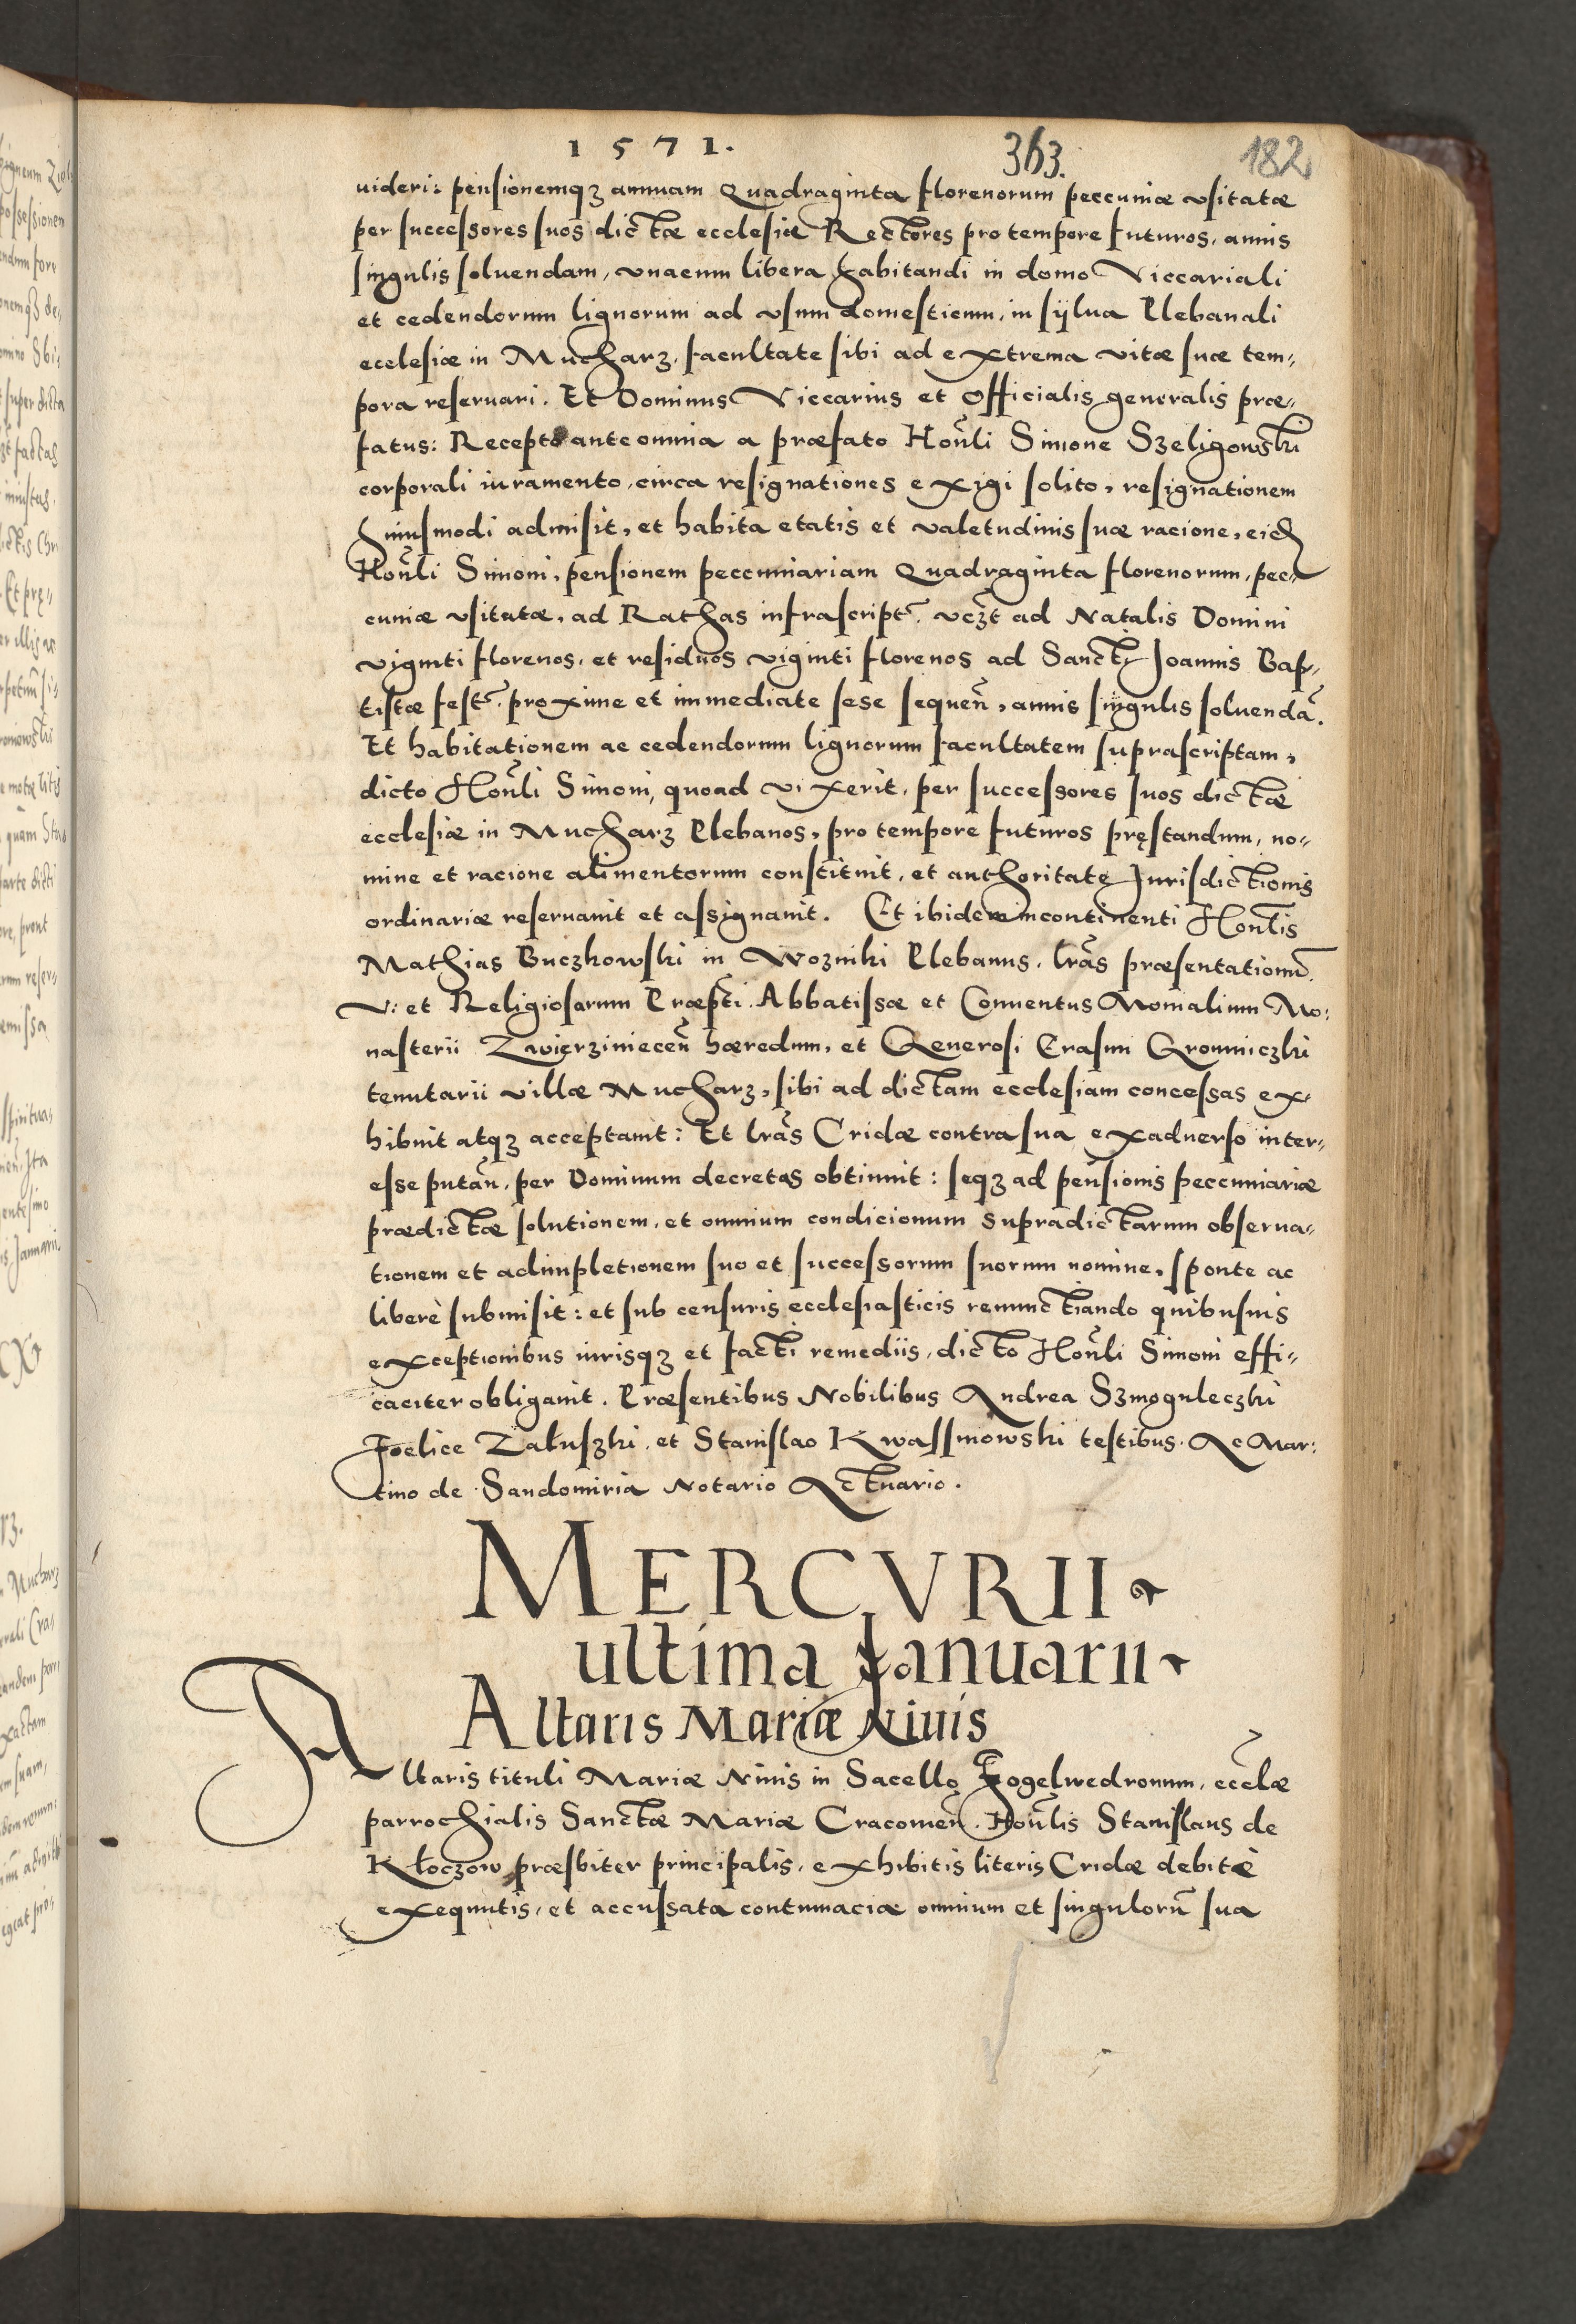 1571.
363.
182
uideri: pensionemqȝ annuam Quadraginta florenorum peccuniæ vsitatæ
per successores suos dictæ ecclesiæ Rectores pro tempore futuros, annis
singulis soluendam, vnacum libera habitandi in domo Viccariali
et cedendorum lignorum ad vsum domesticum, in sylua Plebanali
ecclesiæ in Mucharz, facultate sibi ad extrema vitæ suæ tem-
pora reseruari. Et Dominus Viccarius et Officialis generalis præ-
fatus: Recepto ante omnia a præfato Honli Simone Szeligowski
corporali iuramento, circa resignationes exigi solito, resignationem
huiusmodi admisit, et habita etatis et valetudinis suæ racione, eid
Honli Simoni, pensionem peccuniariam Quadraginta florenorum, pec-
cuniæ vsitatæ, ad Rathas infrascript. vczt ad Natalis Domini
viginti florenos, et residuos viginti florenos ad Sancti Joannis Bap-
tistæ fest. proxime et immediate sese sequen̄, annis singulis soluendā.
Et habitationem ac cedendorum lignorum facultatem suprascriptam,
dicto Honli Simoni, quoad vixerit, per successores suos dictæ
ecclesiæ in Mucharz Plebanos, pro tempore futuros pręstandum, no-
mine et racione alimentorum constituit, et authoritate Jurisdictionis
ordinariæ reseruauit et assignauit. Et ibidem incontinenti Honlis
Mathias Buczkowski in Wozniki Plebanus, lrās præsentationū.
V: et Religiosarum Præpti. Abbatissæ et Conuentus Monialium Mo:
nasterii Zwierziniecen̄ hæredum, et Generosi Erasmi Gromniczki
tenutarii villæ Mucharz, sibi ad dictam ecclesiam concessas ex-
hibuit atqȝ acceptauit: Et lrās Cridæ contra sua exaduerso inter-
esse putan̄, per Dominum decretas obtinuit: seqȝ ad pensionis peccuniariæ
prædictæ solutionem, et omnium condicionum supradictarum obserua-
tionem et adimpletionem suo et successorum suorum nomine, sponte ac
liberè submisit: et sub censuris ecclesiasticis renunctiando quibusuis
exceptionibus iurisqȝ et facti remediis, dicto Honli Simoni effi-
caciter obligauit. Præsentibus Nobilibus Andrea Szmoguleczki
Foelice Załuszki, et Stanislao Kwassniowski testibus. Ac Mar:
tino de Sandomiria Notario Actuario.
MERCVRII
ultima Januarii
Altaris Mariæ Niuis
Altaris tituli Mariæ Niuis in Sacello Fogelwedronum, ecclæ
parrochialis Sanctæ Mariæ Cracouien̄. Honlis Stanislaus de
Kłoczow præsbiter principalis, exhibitis literis Cridæ debitè
exequutis, et accussata contumaciæ omnium et singulorū sua